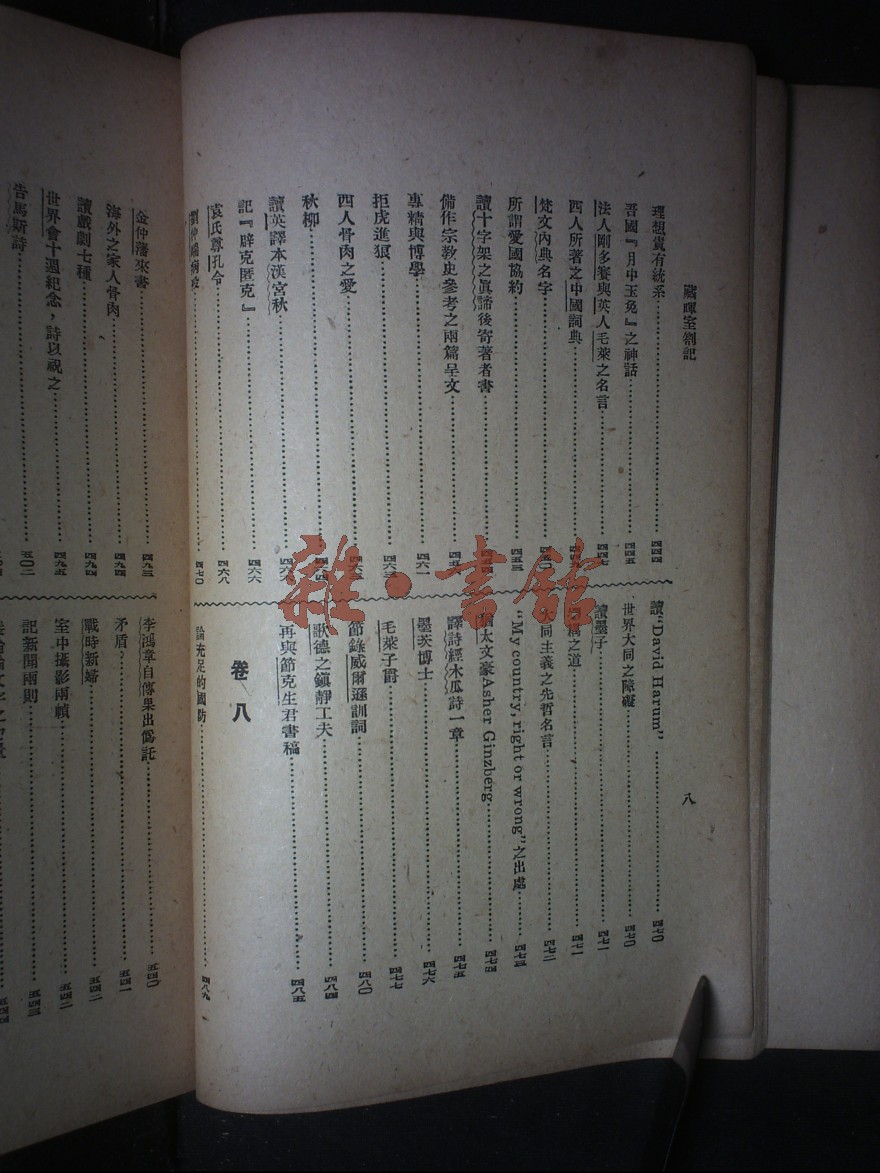 藏暉室劄記
八
理想貴有統系……四四四
吾國『月中玉兔』之神話……四四五
法人剛多賽與英人毛萊之名言……四四七
西人所著之中國詞典……四四九
梵文內典名字……四五〇
所謂愛國協約……四五三
讀十字架之眞諦後寄著者書……四五四
備作宗教史參考之兩篇呈文……四五
專精與博學……四六一
拒虎進狼……四六三
西人骨肉之愛……四六三
秋柳……四六四
讀英譯本漢宮秋……四六六
記『辟克匿克』……四六六
袁氏尊孔令……四六八
劉仲端病歿……四七〇
讀“David Harum”……四七〇
世界大同之障礙……四七〇
讀墨子……四七一
爲之道……四七一
大同主義之先哲名言……四七二
“My country, right or wrong”之出處……四七三
猶太文豪Asher Ginzberg……四七四
譯詩經木瓜詩一章……四七五
墨茨博士……四七六
毛萊子爵……四七七
節錄威爾遜訓詞……四八〇
歌德之鎭靜工夫……四八四
再與節克生君書稿……四八五
卷八
論充足的國防……四八九
金仲藩來書……四九三
海外之家人骨肉……四九四
讀戲劇七種……四九四
世界會十週紀念，詩以祝之……四九五
告馬斯詩……五〇二
李鴻章自傳果出僞託……五四〇
矛盾……五四一
戰時新婦……五四二
室中攝影兩幀……五四二
記新聞兩則……五四三
雜·書館